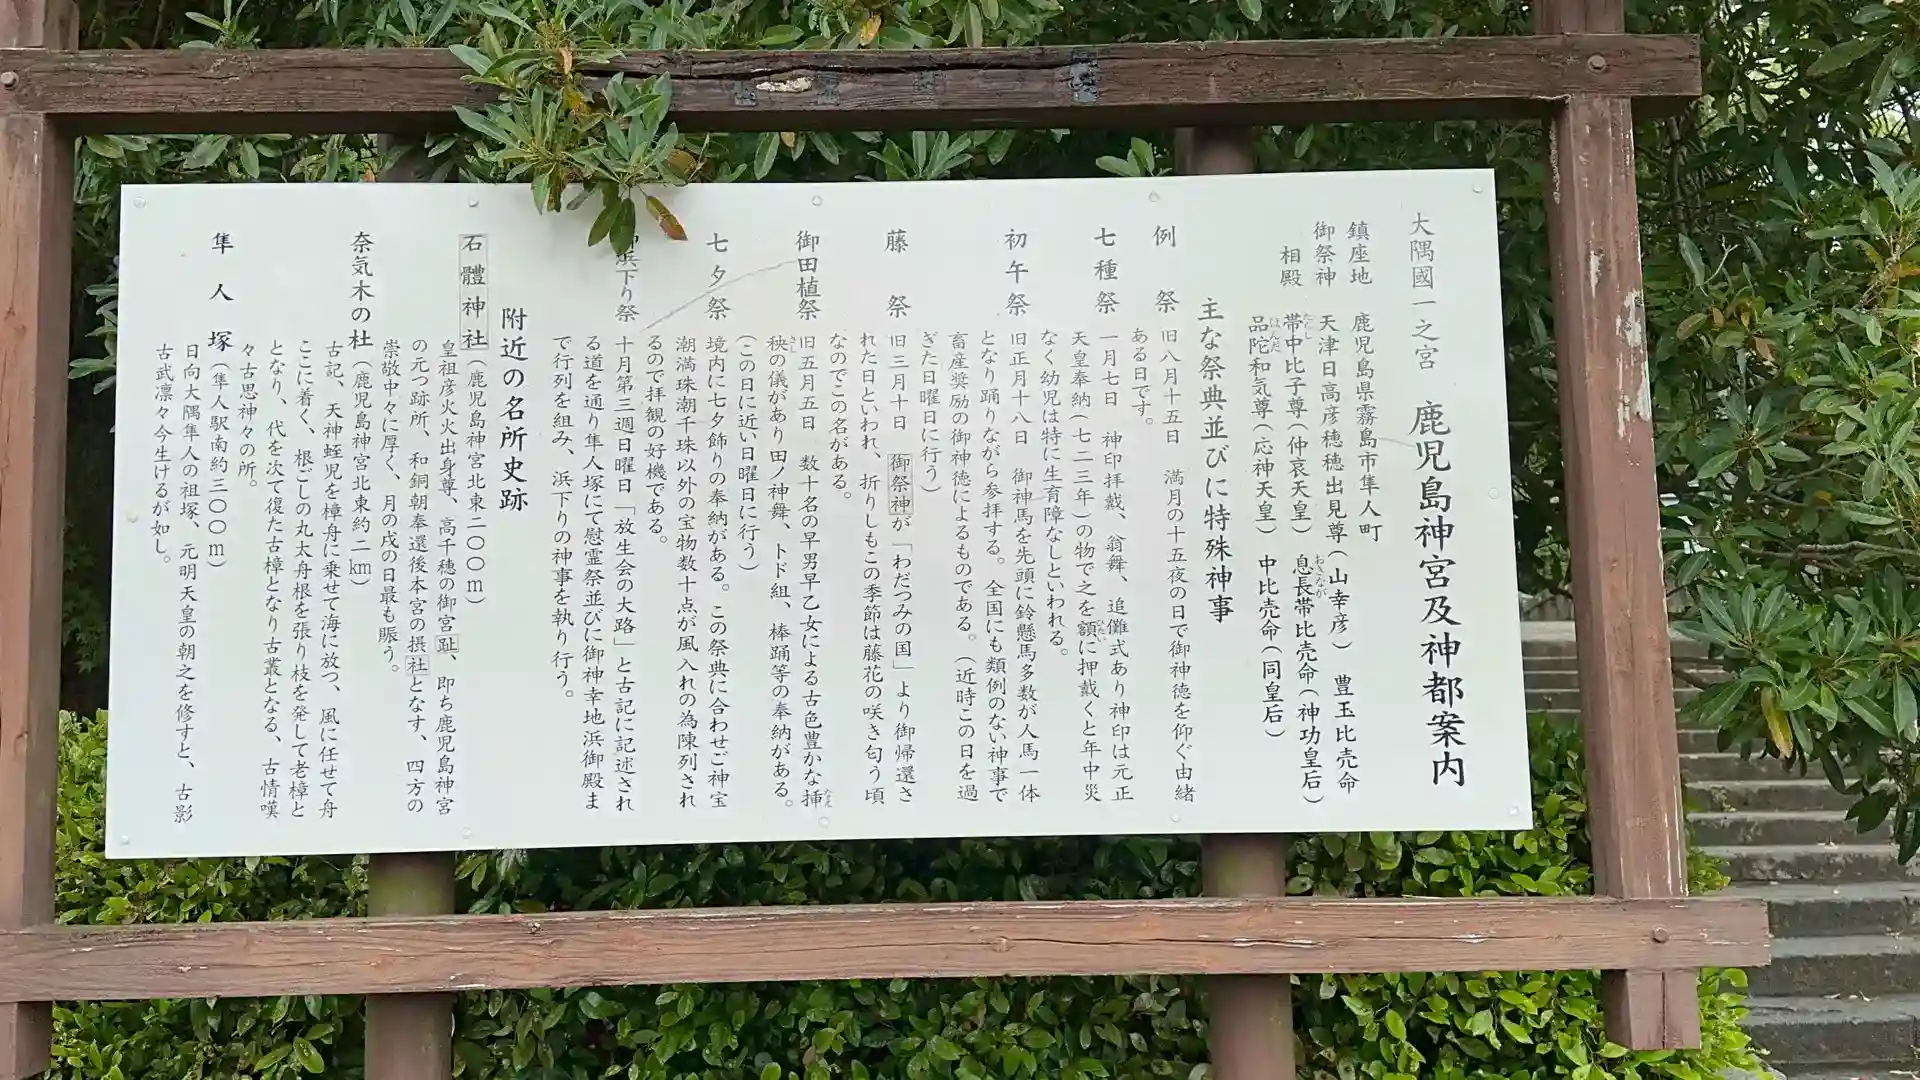 大隅國一之宮 鹿児島神宮及神都案内
鎮座地 鹿児島県霧島市隼人町
御祭神 天津日高彦穂穂出見尊(山幸彦) 豊玉比売命
相殿 帯中比子尊(仲哀天皇) 息長帯比売命(神功皇后)
品陀和気尊(応神天皇) 中比売命(同皇后)
主な祭典並びに特殊神事
例祭 旧八月十五日 満月の十五夜の日で御神徳を仰ぐ由緒
ある日です。
七種祭 一月七日 神印拝戴、翁舞、追儺式あり神印は元正
天皇奉納(七二三年)の物で之を額に押戴くと年中災
なく幼児は特に生育障なしといわれる。
初午祭 旧正月十八日 御神馬を先頭に鈴懸馬多数が人馬一体
となり踊りながら参拝する。全国にも類例のない神事で
畜産奨励の御神徳によるものである。(近時この日を過
ぎた日曜日に行う)
藤祭 旧三月十日 御祭神が「わだつみの国」より御帰還さ
れた日といわれ、折りしもこの季節は藤花の咲き匂う頃
なのでこの名がある。
御田植祭 旧五月五日 数十名の早男早乙女による古色豊かな挿
秧の儀があり田ノ神舞、トド組、棒踊等の奉納がある。
(この日に近い日曜日に行う)
七夕祭 境内に七夕飾りの奉納がある。この祭典に合わせご神宝
潮満珠潮千珠以外の宝物数十点が風入れの為陳列され
るので拝観の好機である。
浜下り祭 十月第三週日曜日「放生会の大路」と古記に記述され
る道を通り隼人塚にて慰霊祭並びに御神幸地浜御殿ま
で行列を組み、浜下りの神事を執り行う。
附近の名所史跡
石體神社(鹿児島神宮北東二〇〇m)
皇祖彦火火出身尊、高千穂の御宮趾、即ち鹿児島神宮
の元つ跡所、和銅朝奉還後本宮の摂社となす、四方の
崇敬中々に厚く、月の戌の日最も賑う。
奈気木の杜(鹿児島神宮北東約二㎞)
古記、天神蛭児を樟舟に乗せて海に放つ、風に任せて舟
ここに着く、根ごしの丸太舟根を張り枝を発して老樟と
となり、代を次て復た古樟となり古叢となる、古情嘆
々古思神々の所。
隼人塚(隼人駅南約三〇〇m)
日向大隅隼人の祖塚、元明天皇の朝之を修すと、古影
古武凛々今生けるが如し。